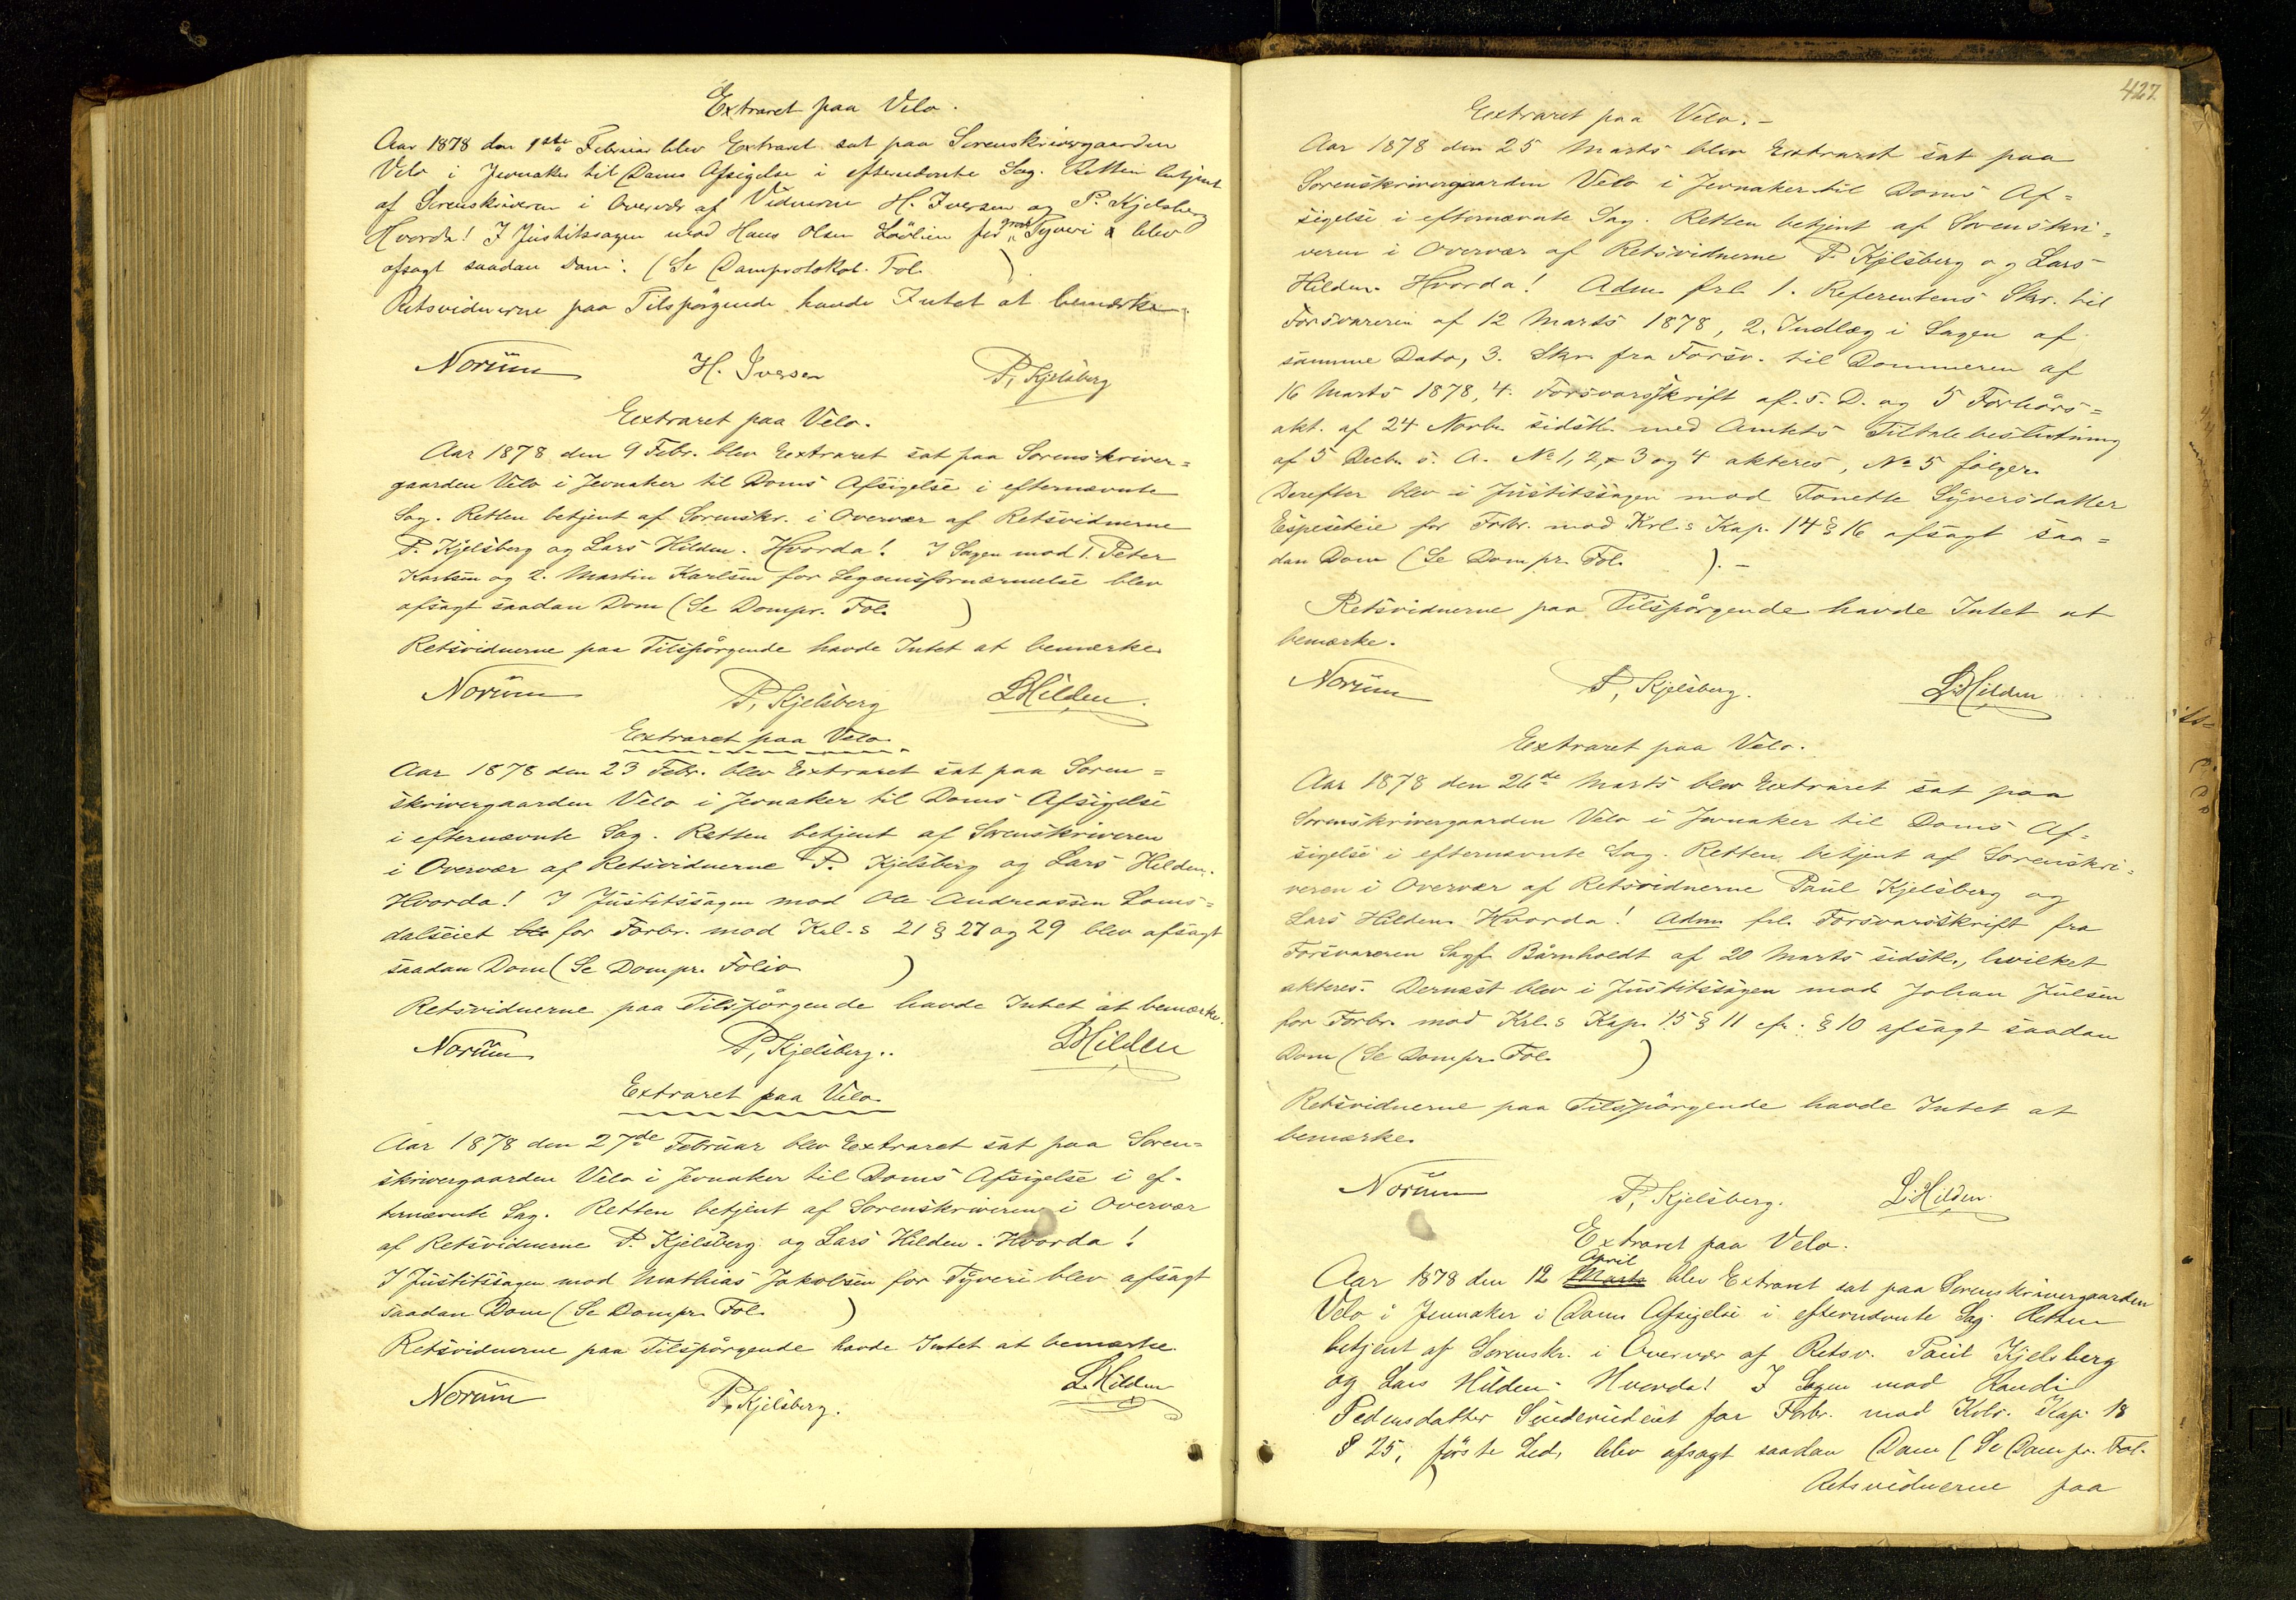 Extraret paa Velo.
Aar 1878 den 1ste Februar blev Extraret sat paa Sorenskrivergaarden
Velo i Jevnaker til Doms Afsigelse i efternævnte Sag. Retten betjent
af Sorenskriveren i Overvær af Vidnerne H. Iversen og P. Kjelsberg
Hvorda! I Justitssagen mod Hans Olsen for Tyveri blev
afsagt saadan Dom: (Se Domprotokol. Fol. )
Retsvidnerne paa Tilspørgende havde Intet at bemærke.
Norum H. Iversen P. Kjelsberg
Extraret paa Velo.
Aar 1878 den 9 Febr. blev Extraret sat paa Sorenskriver=
gaarden Velo i Jevnaker til Doms Afsigelse i efternævnte
Sag. Retten betjent af Sorenskr. i Overvær af Retsvidnerne
P. Kjelsberg og Lars Hilden. Hvorda! I Sagen mod 1. Peter
Karlsen og 2. Martin Karlsen for Legemsfornærmelse blev
afsagt saadan Dom (Se Dompr. Fol. )
Retsvidnerne paa Tilspørgende havde Intet at bemærke.
Norum P. Kjelsberg LHilden.
Extraret paa Velo.
Aar 1878 den 23 Febr. blev Extraret sat paa Soren=
skrivergaarden Velo i Jevnaker til Doms Afsigelse
i efternævnte Sag. Retten betjent af Sorenskriveren
i Overvær af Retsvidnerne P. Kjelsberg og Lars Hilden.
Hvorda! I Justitssagen mod Ole Andreassen Loms=
dalseiet for Forbr. mod Krl.s 21 § 27 og 29 blev afsagt
saadan Dom (Se Dompr. Folio )
Retsvidnerne paa Tilspørgende havde Intet at bemærke.
Norum P. Kjelsberg. LHilden
Extraret paa Velo.
Aar 1878 den 27de Februar blev Extraret sat paa Soren=
skrivergaarden Velo i Jevnaker til Doms Afsigelse i ef-
ternævnte Sag. Retten betjent af Sorenskriveren i Overvær
af Retsvidnerne P. Kjelsberg og Lars Hilden. Hvorda!
I Justitssagen mod Mathias Jakobsen for Tyveri blev afsagt
saadan Dom (Se Dompr. Fol. )
Retsvidnerne paa Tilspørgende havde Intet at bemærke.
Norum P. Kjelsberg. L.Hilden
427
Extraret paa Velo.-
Aar 1878 den 25 Marts blev Extraret sat paa
Sorenskrivergaarden Velo i Jevnaker til Doms Af=
sigelse i efternævnte Sag. Retten betjent af Sorenskri=
veren i Overvær af Retsvidnerne P. Kjelsberg og Lars
Hilden. Hvorda! Adm. frl. 1. Referentens Skr. til
Forsvareren af 12 Marts 1878, 2. Indlæg i Sagen af
samme Dato, 3. Skr. fra Forsv. til Dommeren af
16 Marts 1878, 4. Forsvarsskrift af s. D. og 5 Forhørs=
akt. af 24 Novbr. sidstl. med Amtets Tiltalebeslutning
af 5 Decbr. s. A. No 1, 2, 3 og 4 akteres, No 5 følger.
Derefter blev i Justitssagen mod Tonette Syversdatter
for Forbr. mod Krl.s Kap. 14 § 16 afsagt saa=
dan Dom (Se Dompr. Fol. ).-
Retsvidnerne paa Tilspørgende havde Intet at
bemærke.
Norum P. Kjelsberg. L.Hilden
Extraret paa Velo.
Aar 1878 den 26de Marts blev Extraret sat paa
Sorenskrivergaarden Velo i Jevnaker til Doms Af=
sigelse i efternævnte Sag. Retten betjent af Sorenskri=
veren i Overvær af Retsvidnerne Paul Kjelsberg og
Lars Hilden. Hvorda! Adm. frl. Forsvarsskrift fra
Forsvareren Sagf. Bärnholdt af 20 Marts sidstl., hvilket
akteres. Dernæst blev i Justitssagen mod Johan Julsen
for Forbr. mod Krl.s Kap. 15 § 11 cfr. § 10 afsagt saadan
Dom (Se Dompr. Fol. )
Retsvidnerne paa Tilspørgende havde Intet at
bemærke.
Norum P. Kjelsberg. L.Hilden.
Extraret paa Velo.
April
Aar 1878 den 12 Marts blev Extraret sat paa Sorenskrivergaarden
Velo i Jevnaker i Doms Afsigelse i efternævnte Sag. Retten
betjent af Sorenskr. i Overvær af Retsv. Paul Kjelsberg
og Lars Hilden. Hvorda! I Sagen mod Randi
Pedersdatter for Forbr. mod Krl. Kap. 18
§ 25, første Led, blev afsagt saadan Dom (Se Dompr. Fol.
) Retsvidnerne paa